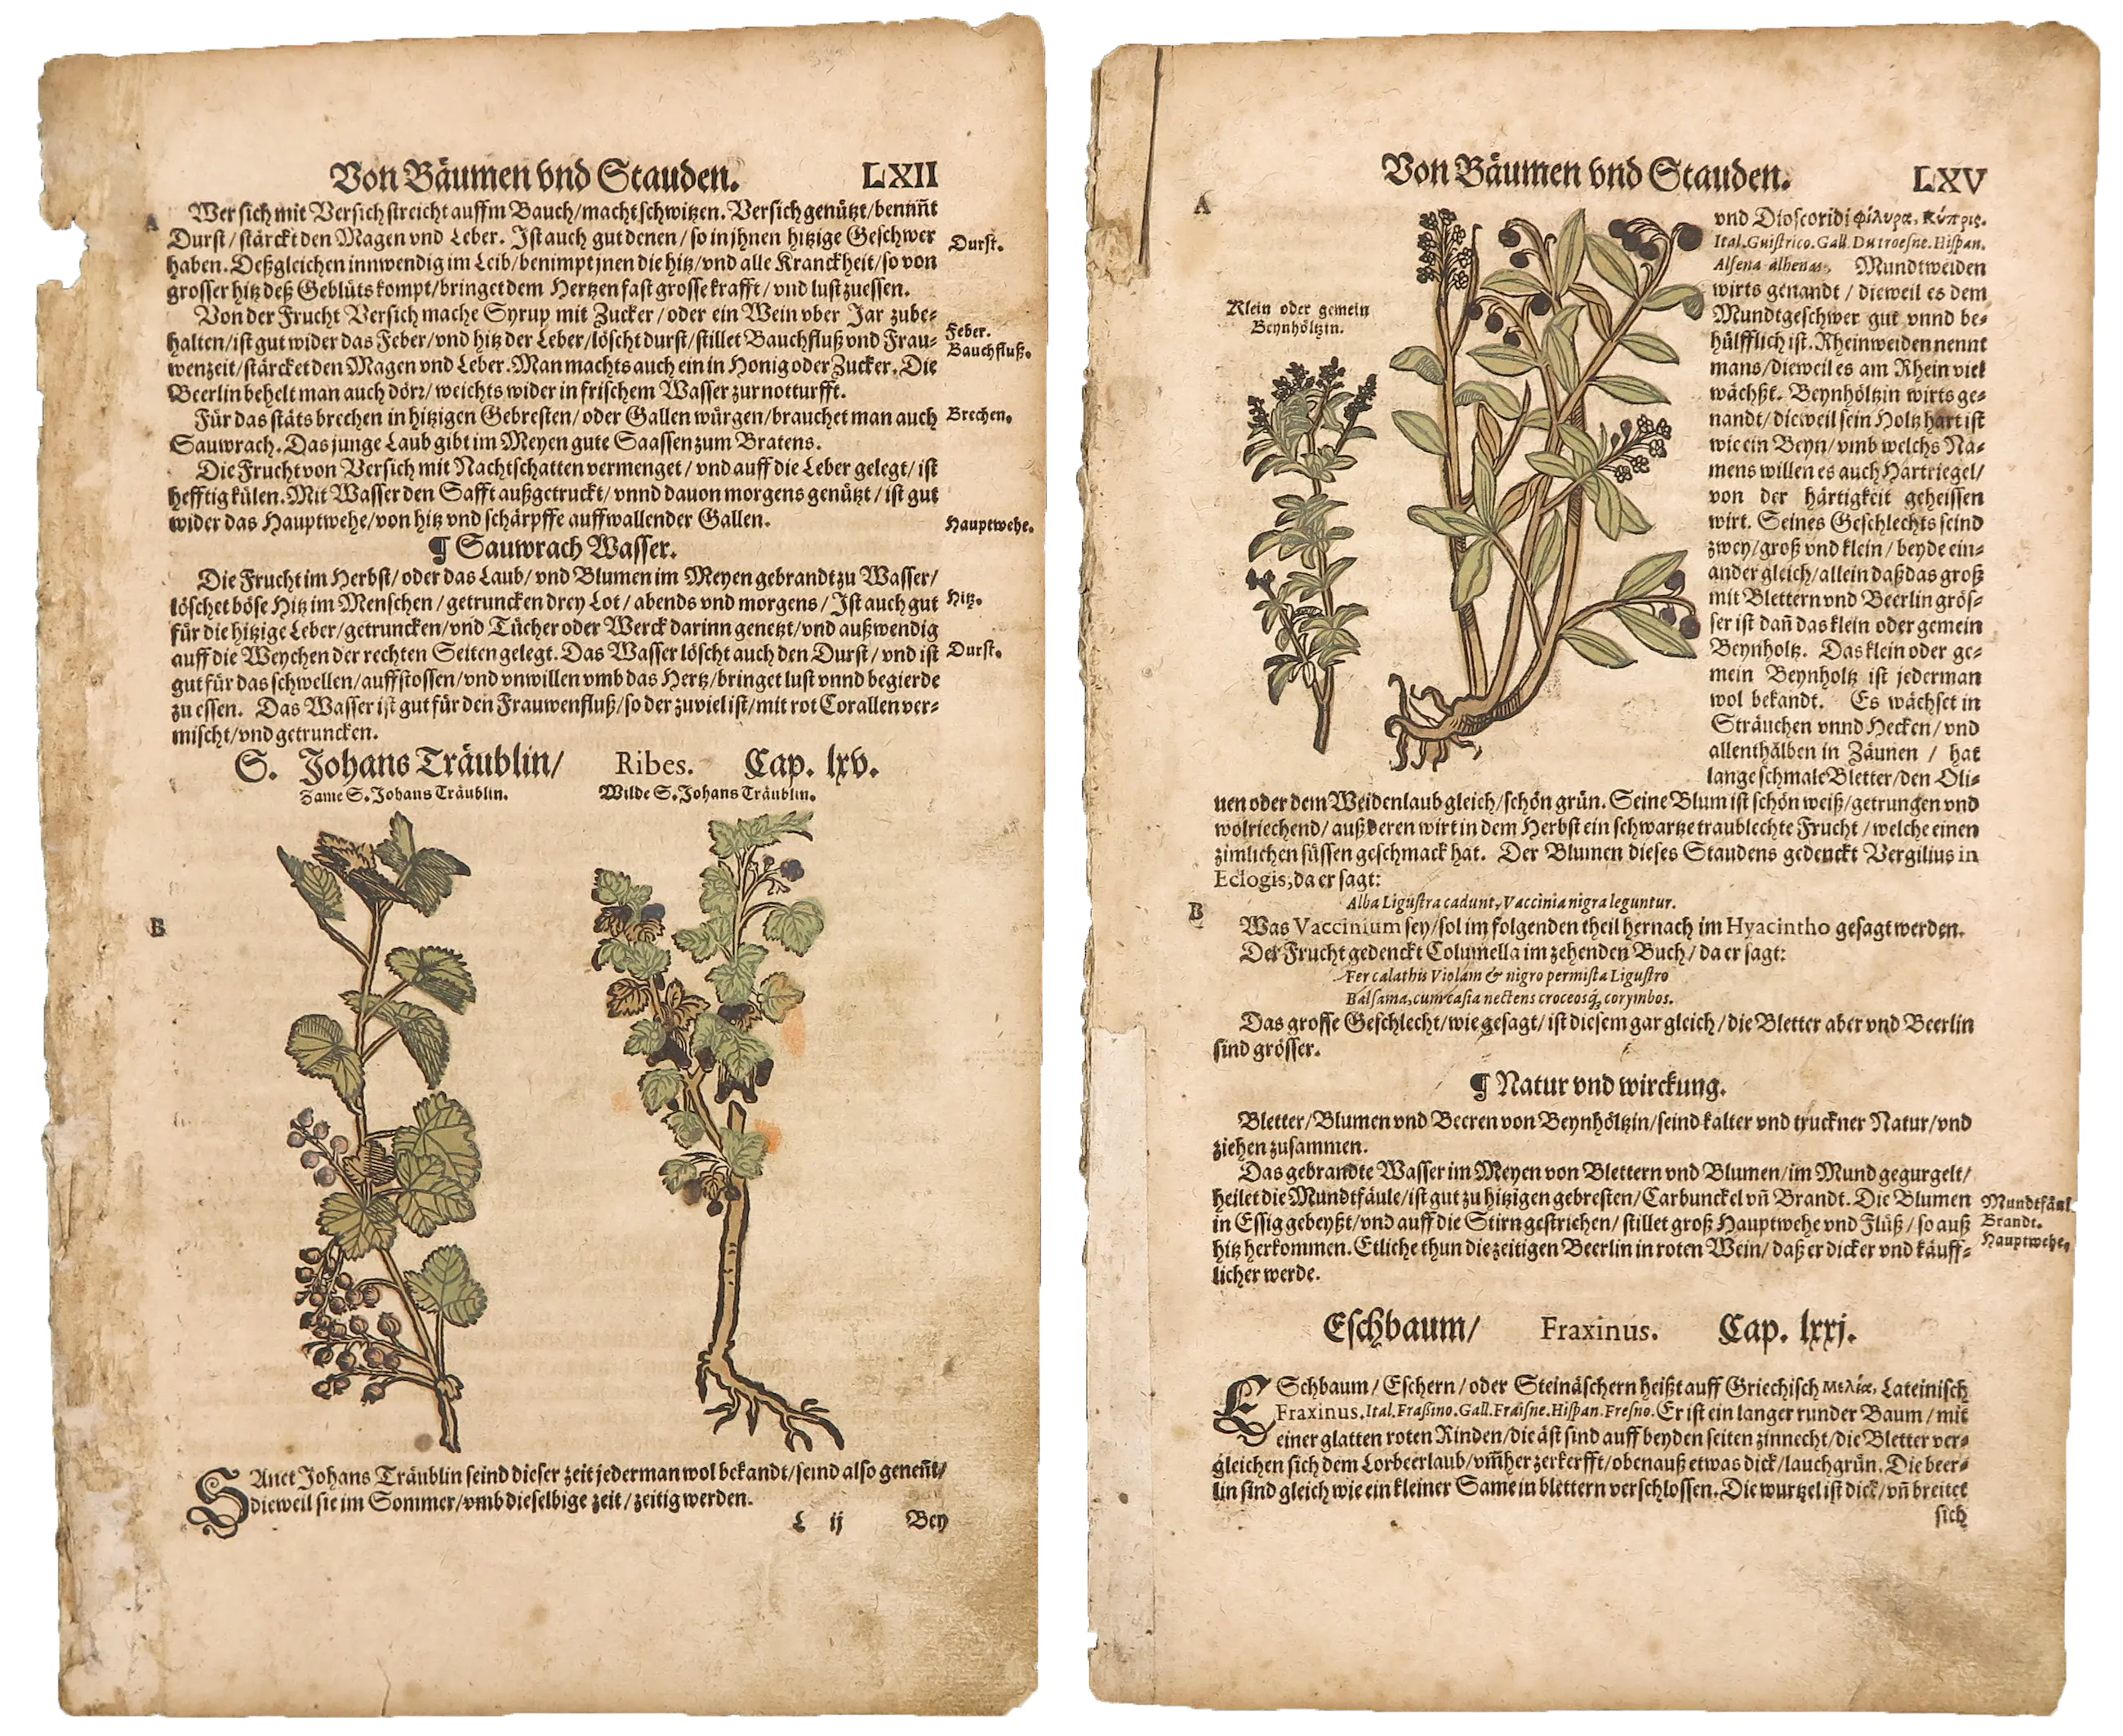 Von Bäumen vnd Stauden. LXII
A
Wer sich mit Versich streicht auffm Bauch/macht schwitzen. Versich genützt/benim̃t
Durst/stärckt den Magen vnd Leber. Ist auch gut denen/so in jhnen hitzige Geschwer
Durst.
haben. Deßgleichen innwendig im Leib/benimpt jnen die hitz/vnd alle Kranckheit/so von
grosser hitz deß Geblüts kompt/bringet dem Hertzen fast grosse krafft/vnd lust zuessen.
Von der Frucht Versich mache Syrup mit Zucker/oder ein Wein vber Jar zube-
Feber.
halten/ist gut wider das Feber/vnd hitz der Leber/löscht durst/stillet Bauchfluß vnd Frau-
Bauchfluß.
wenzeit/stärcket den Magen vnd Leber. Man machts auch ein in Honig oder Zucker. Die
Beerlin behelt man auch dörr/weichts wider in frischem Wasser zur notturfft.
Für das stäts brechen in hitzigen Gebresten/oder Gallen würgen/brauchet man auch
Brechen.
Sauwrach. Das junge Laub gibt im Meyen gute Saassen zum Bratens.
Die Frucht von Versich mit Nachtschatten vermenget/vnd auff die Leber gelegt/ist
hefftig külen. Mit Wasser den Safft außgetruckt/vnnd dauon morgens genützt/ist gut
wider das Hauptwehe/von hitz vnd schärpffe auffwallender Gallen.
Hauptwehe.
¶ Sauwrach Wasser.
Die Frucht im Herbst/oder das Laub/vnd Blumen im Meyen gebrandt zu Wasser/
löschet böse Hitz im Menschen/getruncken drey Lot/abends vnd morgens/Ist auch gut
Hitz.
für die hitzige Leber/getruncken/vnd Tücher oder Werck darinn genetzt/vnd außwendig
auff die Weychen der rechten Seiten gelegt. Das Wasser löscht auch den Durst/vnd ist
Durst.
gut für das schwellen/auffstossen/vnd vnwillen vmb das Hertz/bringet lust vnnd begierde
zu essen. Das Wasser ist gut für den Frauwenfluß/so der zuviel ist/mit rot Corallen ver-
mischt/vnd getruncken.
S. Johans Träublin/ Ribes. Cap. lxv.
Zame S. Johans Träublin. Wilde S. Johans Träublin.
B
SAnct Johans Träublin seind dieser zeit jederman wol bekandt/seind also genen̄t/
dieweil sie im Sommer/vmb dieselbige zeit/zeitig werden.
L ij Bey
Von Bäumen vnd Stauden. LXV
A
Klein oder gemein
Beynhöltzin.
vnd Dioscoridi φίλυρα, κύπρις.
Ital. Guistrico. Gall. Du troesne. Hispan.
Alsena alhenas. Mundtweiden
wirts genandt/dieweil es dem
Mundtgeschwer gut vnnd be-
hülfflich ist. Rheinweiden nennt
mans/dieweil es am Rhein viel
wächßt. Beynhöltzin wirts ge-
nandt/dieweil sein Holtz hart ist
wie ein Beyn/vmb welchs Na-
mens willen es auch Hartriegel/
von der härtigkeit geheissen
wirt. Seines Geschlechts seind
zwey/groß vnd klein/beyde ein-
ander gleich/allein daß das groß
mit Blettern vnd Beerlin grös-
ser ist dan̄ das klein oder gemein
Beynholtz. Das klein oder ge-
mein Beynholtz ist jederman
wol bekandt. Es wächset in
Sträuchen vnnd Hecken/vnd
allenthälben in Zäunen/hat
lange schmale Bletter/den Oli-
uen oder dem Weidenlaub gleich/schön grün. Seine Blum ist schön weiß/getrungen vnd
wolriechend/auß deren wirt in dem Herbst ein schwartze traublechte Frucht/welche einen
zimlichen süssen geschmack hat. Der Blumen dieses Staudens gedenckt Vergilius in
Eclogis, da er sagt:
Alba Ligustra cadunt, Vaccinia nigra leguntur.
B
Was Vaccinium sey/sol im folgenden theil hernach im Hyacintho gesagt werden.
Der Frucht gedenckt Columella im zehenden Buch/da er sagt:
Fer calathis Violam & nigro permista Ligustro
Balsama, cum casia nectens croceosq́; corymbos.
Das grosse Geschlecht/wie gesagt/ist diesem gar gleich/die Bletter aber vnd Beerlin
sind grösser.
¶ Natur vnd wirckung.
Bletter/Blumen vnd Beeren von Beynhöltzin/seind kalter vnd truckner Natur/vnd
ziehen zusammen.
Das gebrandte Wasser im Meyen von Blettern vnd Blumen/im Mund gegurgelt/
heilet die Mundtfäule/ist gut zu hitzigen gebresten/Carbunckel vn̄ Brandt. Die Blumen
Mundtfäul
in Essig gebeyßt/vnd auff die Stirn gestrichen/stillet groß Hauptwehe vnd Flüß/so auß
Brandt.
hitz herkommen. Etliche thun die zeitigen Beerlin in roten Wein/daß er dicker vnd käuff-
Hauptwehe.
licher werde.
Eschbaum/ Fraxinus. Cap. lxxj.
ESchbaum/Eschern/oder Steinäschern heißt auff Griechisch μελία, Lateinisch
Fraxinus. Ital. Fraßino. Gall. Fraisne. Hispan. Fresno. Er ist ein langer runder Baum/mit
einer glatten roten Rinden/die äst sind auff beyden seiten zinnecht/die Bletter ver-
gleichen sich dem Lorbeerlaub/vm̄her zerkerfft/obenauß etwas dick/lauchgrün. Die beer-
lin sind gleich wie ein kleiner Same in blettern verschlossen. Die wurtzel ist dick/vn̄ breitet
sich